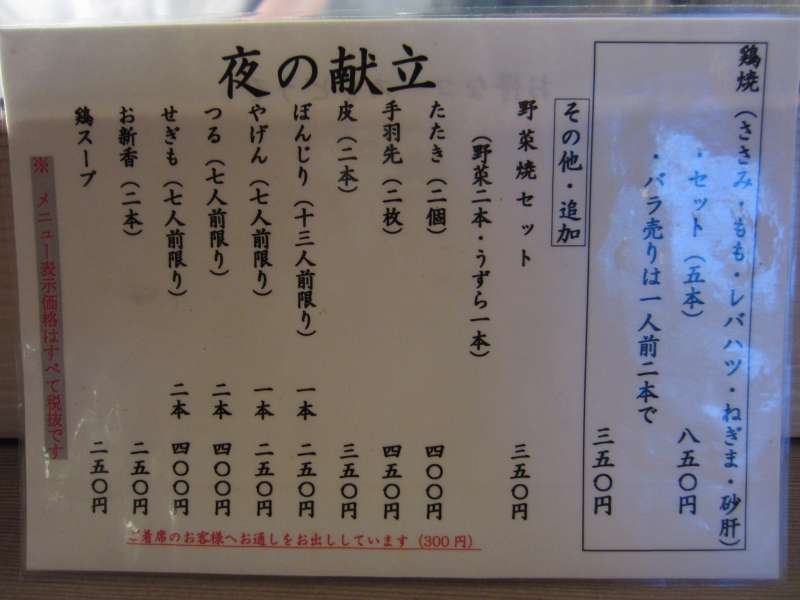 夜の献立
鶏焼（ささみ・もも・レバハツ・ねぎま・砂肝）
・セット（五本） 八五〇円
・バラ売りは一人前二本で 三五〇円
その他・追加
野菜焼セット 三五〇円
（野菜二本・うずら一本）
たたき（二個） 四〇〇円
手羽先（二枚） 四五〇円
皮（二本） 三五〇円
ぼんじり（十三人前限り） 一本 二五〇円
やげん（七人前限り） 一本 二五〇円
つる（七人前限り） 二本 四〇〇円
せぎも（七人前限り） 二本 四〇〇円
お新香（二本） 二五〇円
鶏スープ 二五〇円
※ メニュー表示価格はすべて税抜です
ご着席のお客様へお通しをお出ししています（300円）